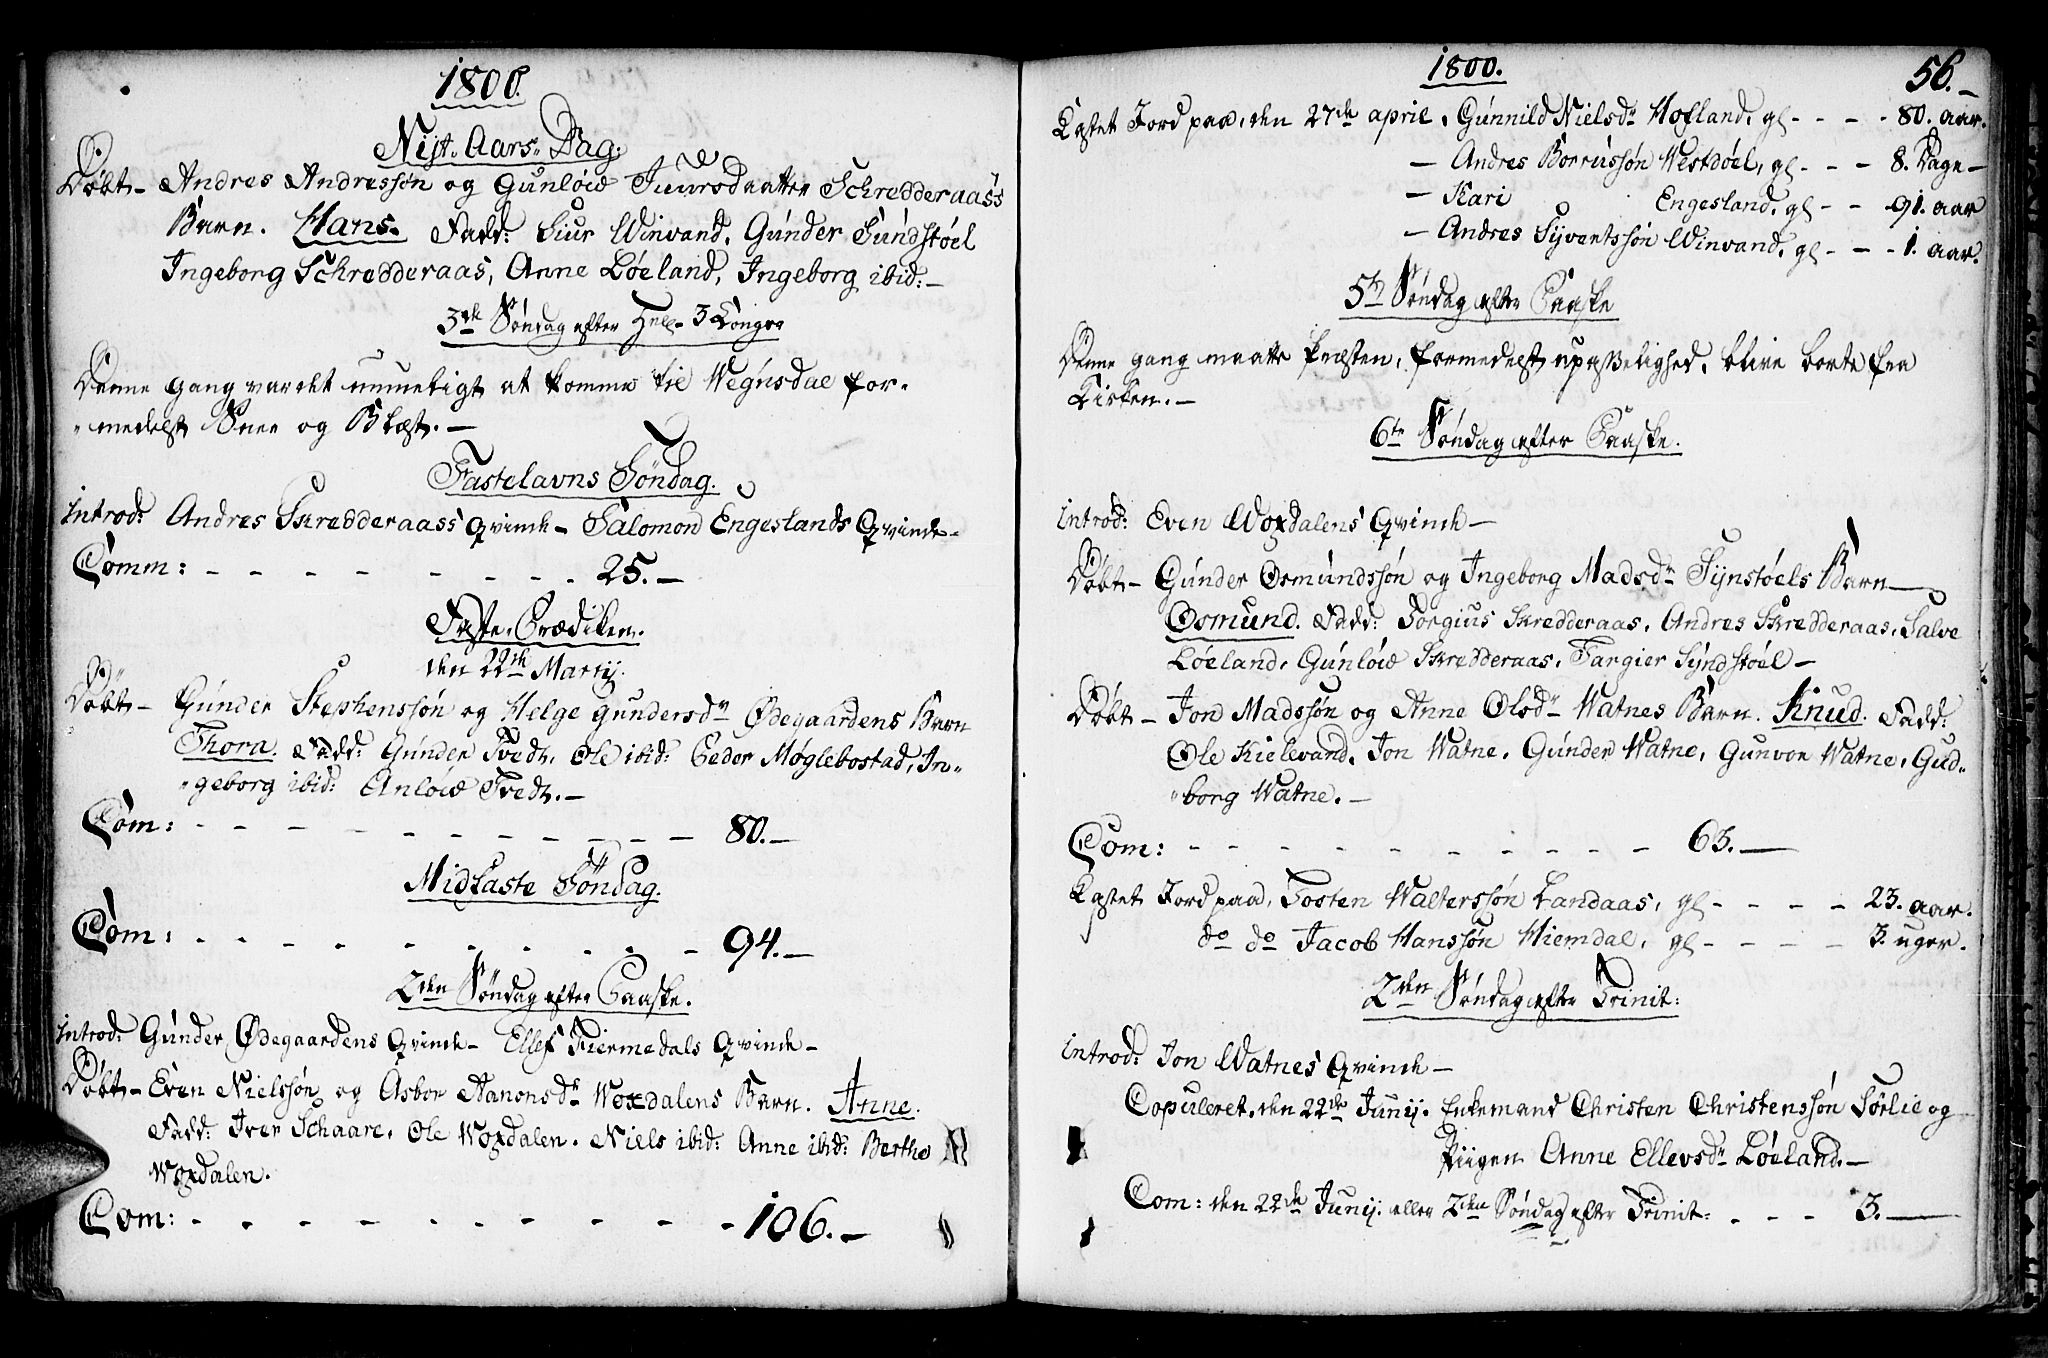 1800.
Nijt. Aars. Dag.
Døbt – Andres Andressøn og Gunløie Siursdaatter Schredderaass
Barn. Hans. Fadd: Siur Winvand, Gunder Sundstøel
Ingeborg Schredderaas, Anne Løeland, Ingeborg ibid: –
3die Søndag efter Hell. 3 Konger
Denne gang var det umueligt at komme til Wegusdal for-
medelst Snee og Blæst. –
Fastelavns Søndag.
Introd: Andres Skredderaass Qvinde – Salomon Engeslands Qvinde –
Comm: – – – – – – – 25. –
Faste-Prædiken.
den 22de Martij.
Døbt – Gunder Stephenssøn og Helge Gundersdr Ødegaardens Barn
Thora. Fadd: Gunder Tvedt, Ole ibid: Peder Møglebostad, In-
geborg ibid: Anløie Tvedt. –
Com: – – – – – – – – – – 80. –
Midfaste Søndag.
Com: – – – – – – – – – 94. –
2den Søndag efter Paaske.
Introd: Gunder Ødegaardens Qvinde – Ellef Fiermedals Qvinde –
Døbt – Even Nielssøn og Asbor Aanonsdr Woxdalens Barn. Anne.
Fadd: Iver Schaare, Ole Woxdalen. Niels ibid: Anne ibid: Berthe
Woxdalen.
Com: – – – – – – – – – 106. –
1800. 56. –
Kastet Jord paa, den 27de april, Gunnild Nielsdr Hofland, gl – – – – 80. aar.
– Andres Borrussøn Westdøel, gl – – – 8. Dage –
– Kari Engesland, gl – – 91. aar
– Andres Syventssøn Winvand, gl – – – 1. aar.
5te Søndag efter Paaske
Denne gang maatte Præsten, formedelst upasselighed, blive borte fra
Kirken. –
6te Søndag efter Paaske.
Introd: Even Woxdalens Qvinde –
Døbt – Gunder Osmundssøn og Ingeborg Madsdr Synstøels Barn –
Osmund. Fadd: Torgius Skredderaas, Andres Skredderaas, Salve
Løeland, Gunløie Skredderaas, Targier Syndstøel –
Døbt – Jon Madssøn og Anne Olsdr Watnes Barn. Knud. Fadd:
Ole Kielevand, Jon Watne, Gunder Watne, Gunvor Watne, Gud-
borg Watne. –
Com: – – – – – – – – – – 63. –
Kastet Jord paa, Tosten Walterssøn Landaas, gl – – – – 23. aar.
do do Jacob Hanssøn Hiemdal, gl – – – – 3. uger.
2den Søndag efter Trinit:
Introd: Jon Watnes Qvinde –
Copuleret, den 22de Junij. Enkemand Christen Christenssøn Sørlie og
Piigen Anne Ellevsdr Løeland. –
Com: den 22de Junij. eller 2den Søndag efter Trinit: – – – 3. –